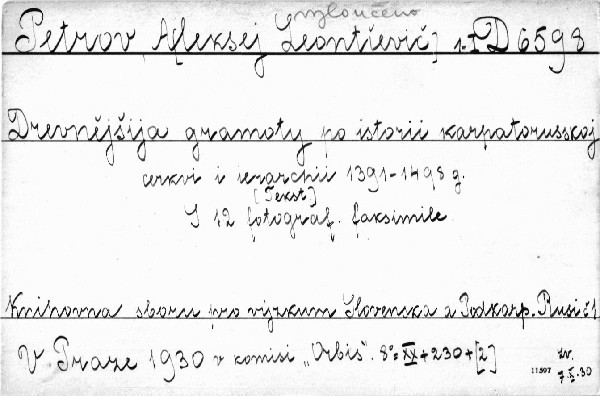 vyloučeno
Petrov, A[leksej Leontievič] I D 6598
Drevnějšija gramoty po istorii karpatorusskoj
cerkvi i ierarchii 1391-1498 g.
[Tekst]
S 12 fotograf. faksimile
Knihovna sboru pro výzkum Slovenska a Podkarp. Rusi č 1
V Praze 1930 v komisi „Orbis". 8°=XX+230+[2]
11597
7.X.30